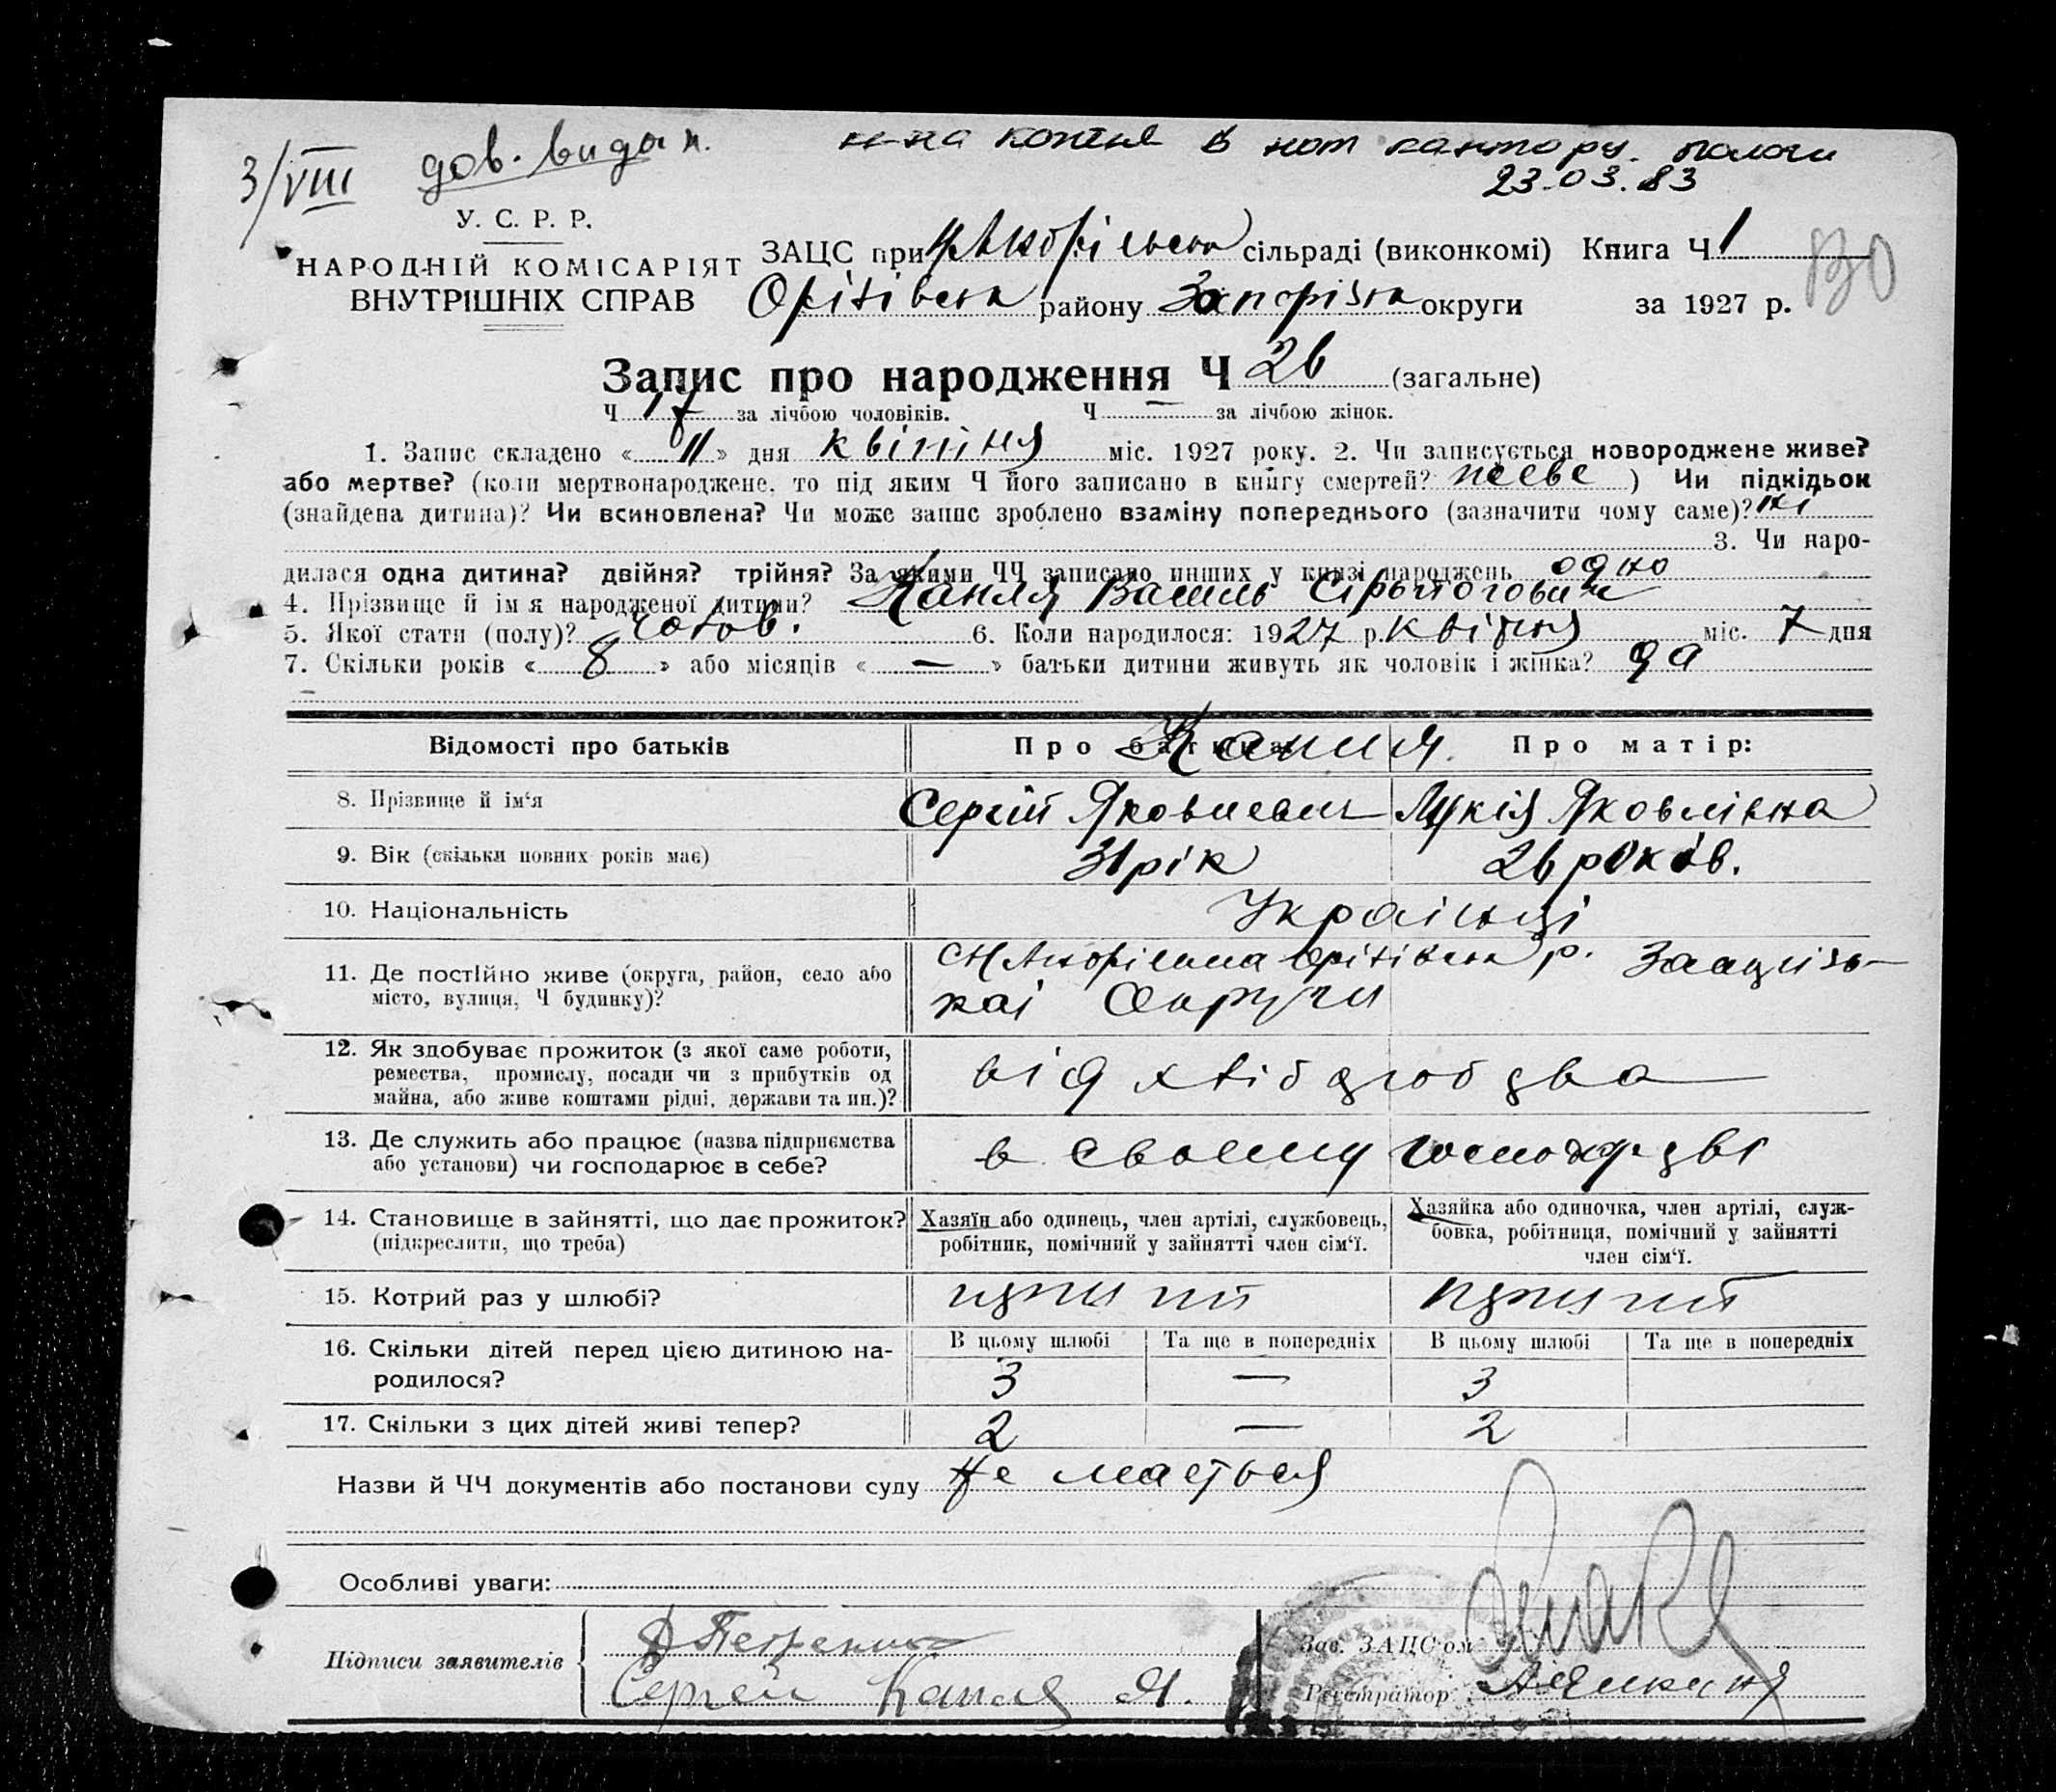 3/VIII дов. видан. копия в нот контору
23.03.83
У. С. Р. Р.
НАРОДНІЙ КОМІСАРІЯТ
ВНУТРІШНІХ СПРАВ
ЗАЦС при сільраді (виконкомі) Книга Ч 1
Оріхівськ району Запоріжк округи за 1927 р. 130
Запис про народження Ч 26 (загальне)
Ч 17 за лічбою чоловіків. Ч — за лічбою жінок.
1. Запис складено « 11 » дня квітня міс. 1927 року. 2. Чи записується новороджене живе?
або мертве? (коли мертвонароджене, то під яким Ч його записано в книгу смертей? ) Чи підкідьок
(знайдена дитина)? Чи всиновлена? Чи може запис зроблено взаміну попереднього (зазначити чому саме)? ні
3. Чи наро-
дилася одна дитина? двійня? трійня? За якими ЧЧ записано инших у книзі народжень одно
4. Прізвище й ім я народженої дитини? Капля Василь
5. Якої стати (полу)? чолов. 6. Коли народилося: 1927 р. квітня міс. 7 дня
7. Скільки років « 8 » або місяців « — » батьки дитини живуть як чоловік і жінка? да
Відомості про батьків Про батька: Про матір:
Капля.
8. Прізвище й ім‘я Сергій Яковлевич Лукія Яковлівна
9. Вік (скільки повних років має) 31 рік 26 років.
10. Національність Українці
11. Де постійно живе (округа, район, село або Оріхівськ р.
місто, вулиця, Ч будинку)? кої Округи
12. Як здобуває прожиток (з якої саме роботи,
ремества, промислу, посади чи з прибутків од від хліборобства
майна, або живе коштами рідні, держави та ин.)?
13. Де служить або працює (назва підприємства в своему господарстві
або установи) чи господарює в себе?
14. Становище в зайнятті, що дає прожиток? Хазяїн або одинець, член артілі, службовець, Хазяйка або одиночка, член артілі, служ-
(підкреслити, що треба) робітник, помічний у зайнятті член сім‘ї. бовка, робітниця, помічний у зайнятті
член сім‘ї.
15. Котрий раз у шлюбі?
16. Скільки дітей перед цією дитиною на- В цьому шлюбі Та ще в попередніх В цьому шлюбі Та ще в попередніх
родилося? 3 — 3
17. Скільки з цих дітей живі тепер? 2 — 2
Назви й ЧЧ документів або постанови суду Не мається
Особливі уваги:
Підписи заявителів
Сергей Капля Я.
Зав. ЗАЦС‘ом
Реєстратор